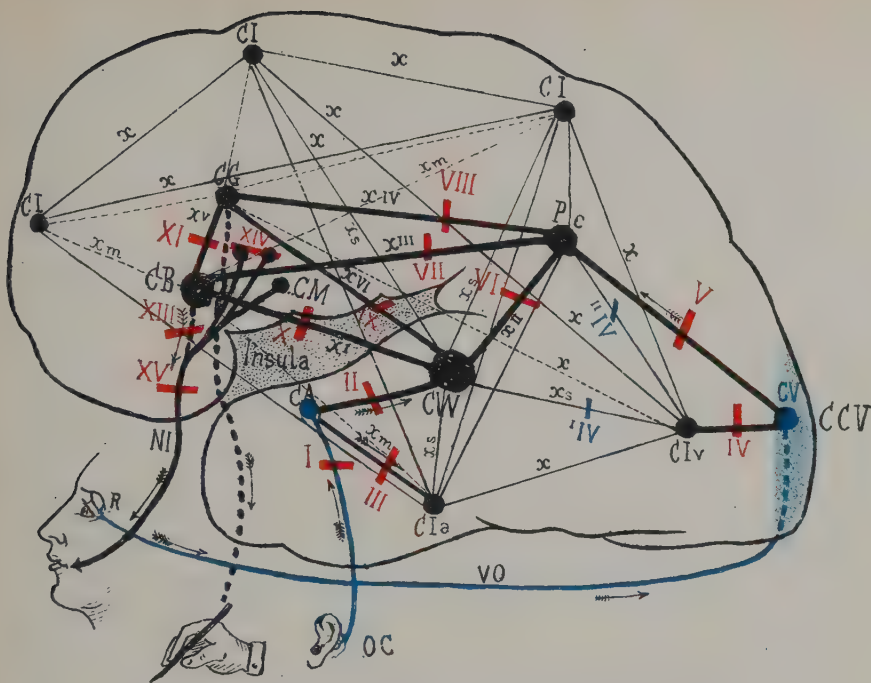 CI
x
CI
x
x
x
CI
x
x m
CG
x IV
VIII
P
c
x V
XI
XIV
x s
x III
VII
x m
x
CB
CM
x VI
VI
V
XIII
X
X
x I
x s
x II
IV"
x
Insula
x
XV
II
CA
CW
x s
IV'
CV
CCV
NI
x m
x s
CIv
IV
I
III
x
CIa
R
VO
OC